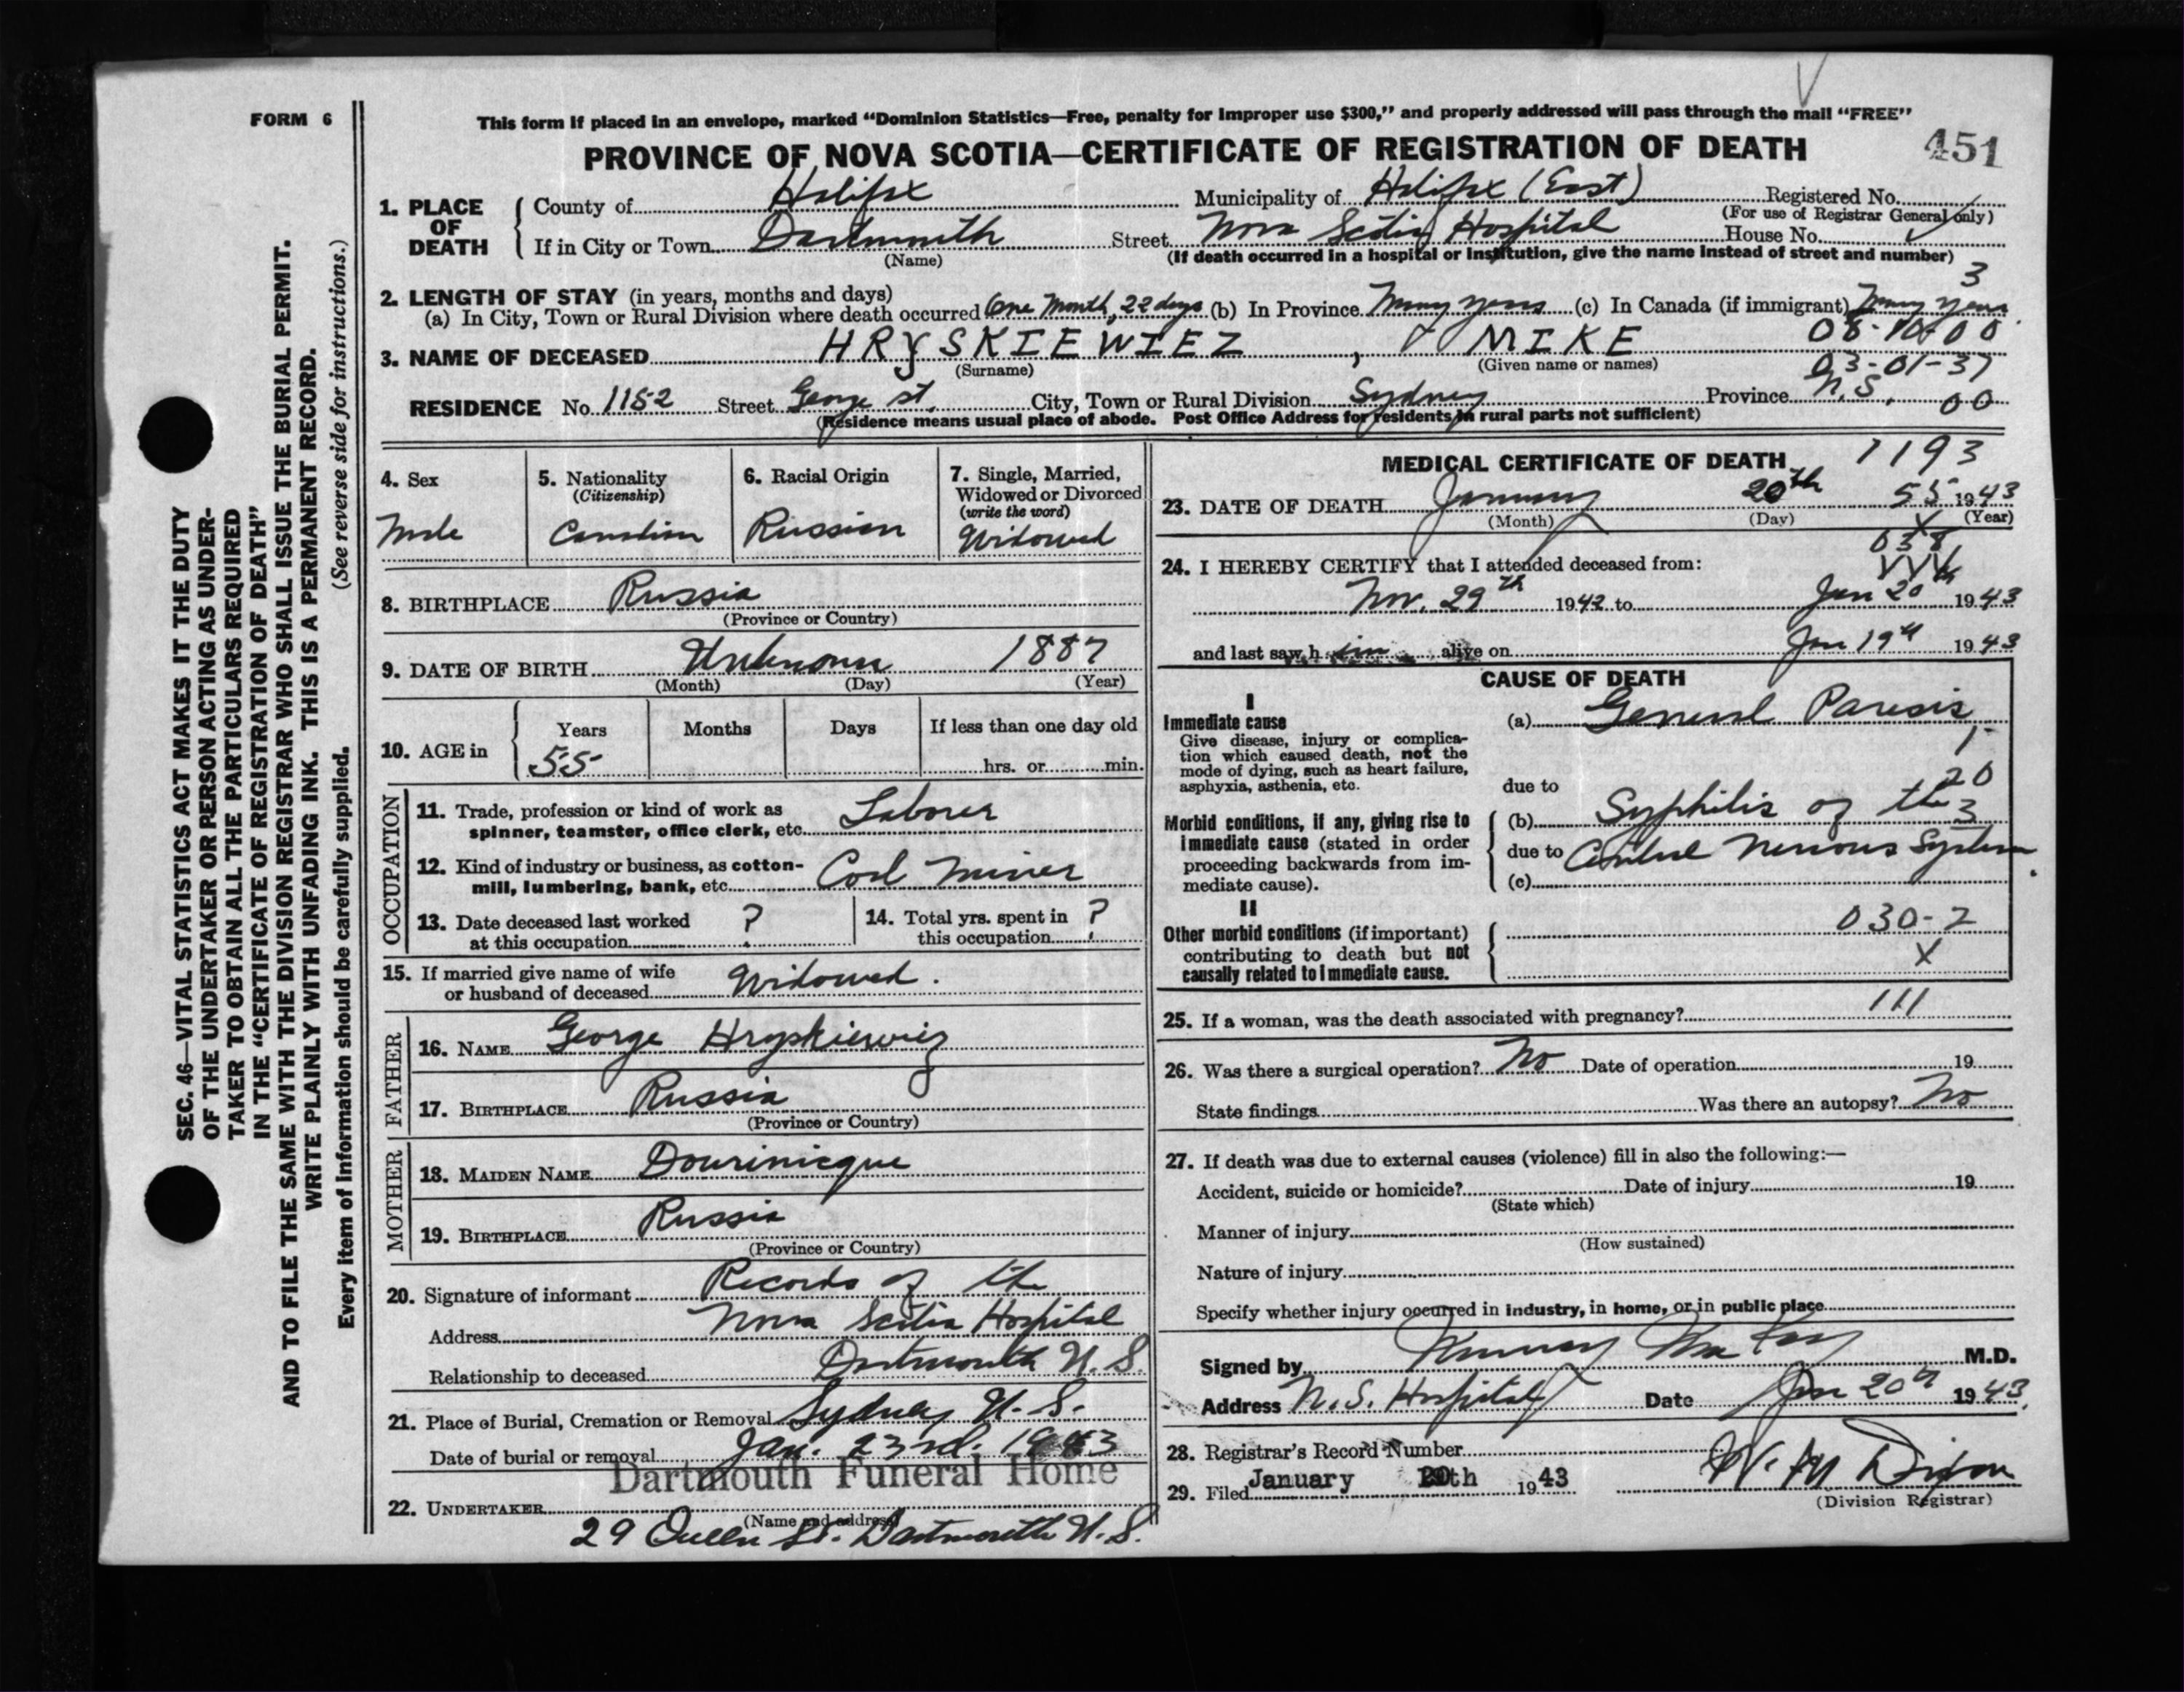 FORM 6
This form if placed in an envelope, marked "Dominion Statistics—Free, penalty for improper use $300," and properly addressed will pass through the mail "FREE"
PROVINCE OF NOVA SCOTIA—CERTIFICATE OF REGISTRATION OF DEATH
451
1. PLACE OF DEATH
County of Halifax Municipality of Halifax (East) Registered No.
(For use of Registrar General only)
If in City or Town Dartmouth Street Nova Scotia Hospital House No.
(Name) (If death occurred in a hospital or institution, give the name instead of street and number)
3
2. LENGTH OF STAY (in years, months and days)
(a) In City, Town or Rural Division where death occurred One Month, 22 days (b) In Province Many years (c) In Canada (if immigrant) Many years
08-10-00
3. NAME OF DECEASED HRYSKIEWIEZ, MIKE
(Surname) (Given name or names)
03-01-37
RESIDENCE No. 1152 Street George st. City, Town or Rural Division Sydney Province N.S. 00
(Residence means usual place of abode. Post Office Address for residents in rural parts not sufficient)
4. Sex
Male
5. Nationality
(Citizenship)
Canadian
6. Racial Origin
Russian
7. Single, Married,
Widowed or Divorced
(write the word)
Widowed
8. BIRTHPLACE Russia
(Province or Country)
9. DATE OF BIRTH Unknown 1887
(Month) (Day) (Year)
10. AGE in
Years Months Days If less than one day old
55 hrs. or min.
OCCUPATION
11. Trade, profession or kind of work as
spinner, teamster, office clerk, etc. Laborer
12. Kind of industry or business, as cotton-
mill, lumbering, bank, etc. Coal Miner
13. Date deceased last worked
at this occupation ?
14. Total yrs. spent in
this occupation ?
15. If married give name of wife
or husband of deceased Widowed.
FATHER
16. NAME George Hryskiewiez
17. BIRTHPLACE Russia
(Province or Country)
MOTHER
18. MAIDEN NAME Dourinicque
19. BIRTHPLACE Russia
(Province or Country)
20. Signature of informant Records of the
Address Nova Scotia Hospital
Relationship to deceased Dartmouth N.S.
21. Place of Burial, Cremation or Removal Sydney N.S.
Date of burial or removal Jan. 23rd. 1943
Dartmouth Funeral Home
22. UNDERTAKER
(Name and address)
29 Queen St. Dartmouth N.S.
MEDICAL CERTIFICATE OF DEATH 1193
23. DATE OF DEATH January 20th 55 1943
(Month) (Day) (Year)
X
038
24. I HEREBY CERTIFY that I attended deceased from:
Nov. 29th 1942 to Jan 20th 1943
and last saw h im alive on Jan 19th 1943
CAUSE OF DEATH
I
Immediate cause
Give disease, injury or complica-
tion which caused death, not the
mode of dying, such as heart failure,
asphyxia, asthenia, etc.
(a) General Paresis
1
20
due to
Morbid conditions, if any, giving rise to
immediate cause (stated in order
proceeding backwards from im-
mediate cause).
(b) Syphilis of the
3
due to Central Nervous System.
(c)
II
Other morbid conditions (if important)
contributing to death but not
causally related to immediate cause.
030-2
X
111
25. If a woman, was the death associated with pregnancy?
26. Was there a surgical operation? No Date of operation 19
State findings Was there an autopsy? No
27. If death was due to external causes (violence) fill in also the following:—
Accident, suicide or homicide? Date of injury 19
(State which)
Manner of injury
(How sustained)
Nature of injury
Specify whether injury occurred in industry, in home, or in public place
Signed by Murray MacKay M.D.
Address N.S. Hospital Date Jan 20th 1943.
28. Registrar's Record Number
29. Filed January 20th 1943 W. M Dixon
(Division Registrar)
SEC. 46—VITAL STATISTICS ACT MAKES IT THE DUTY
OF THE UNDERTAKER OR PERSON ACTING AS UNDER-
TAKER TO OBTAIN ALL THE PARTICULARS REQUIRED
IN THE "CERTIFICATE OF REGISTRATION OF DEATH"
AND TO FILE THE SAME WITH THE DIVISION REGISTRAR WHO SHALL ISSUE THE BURIAL PERMIT.
WRITE PLAINLY WITH UNFADING INK. THIS IS A PERMANENT RECORD.
(See reverse side for instructions.)
Every item of information should be carefully supplied.